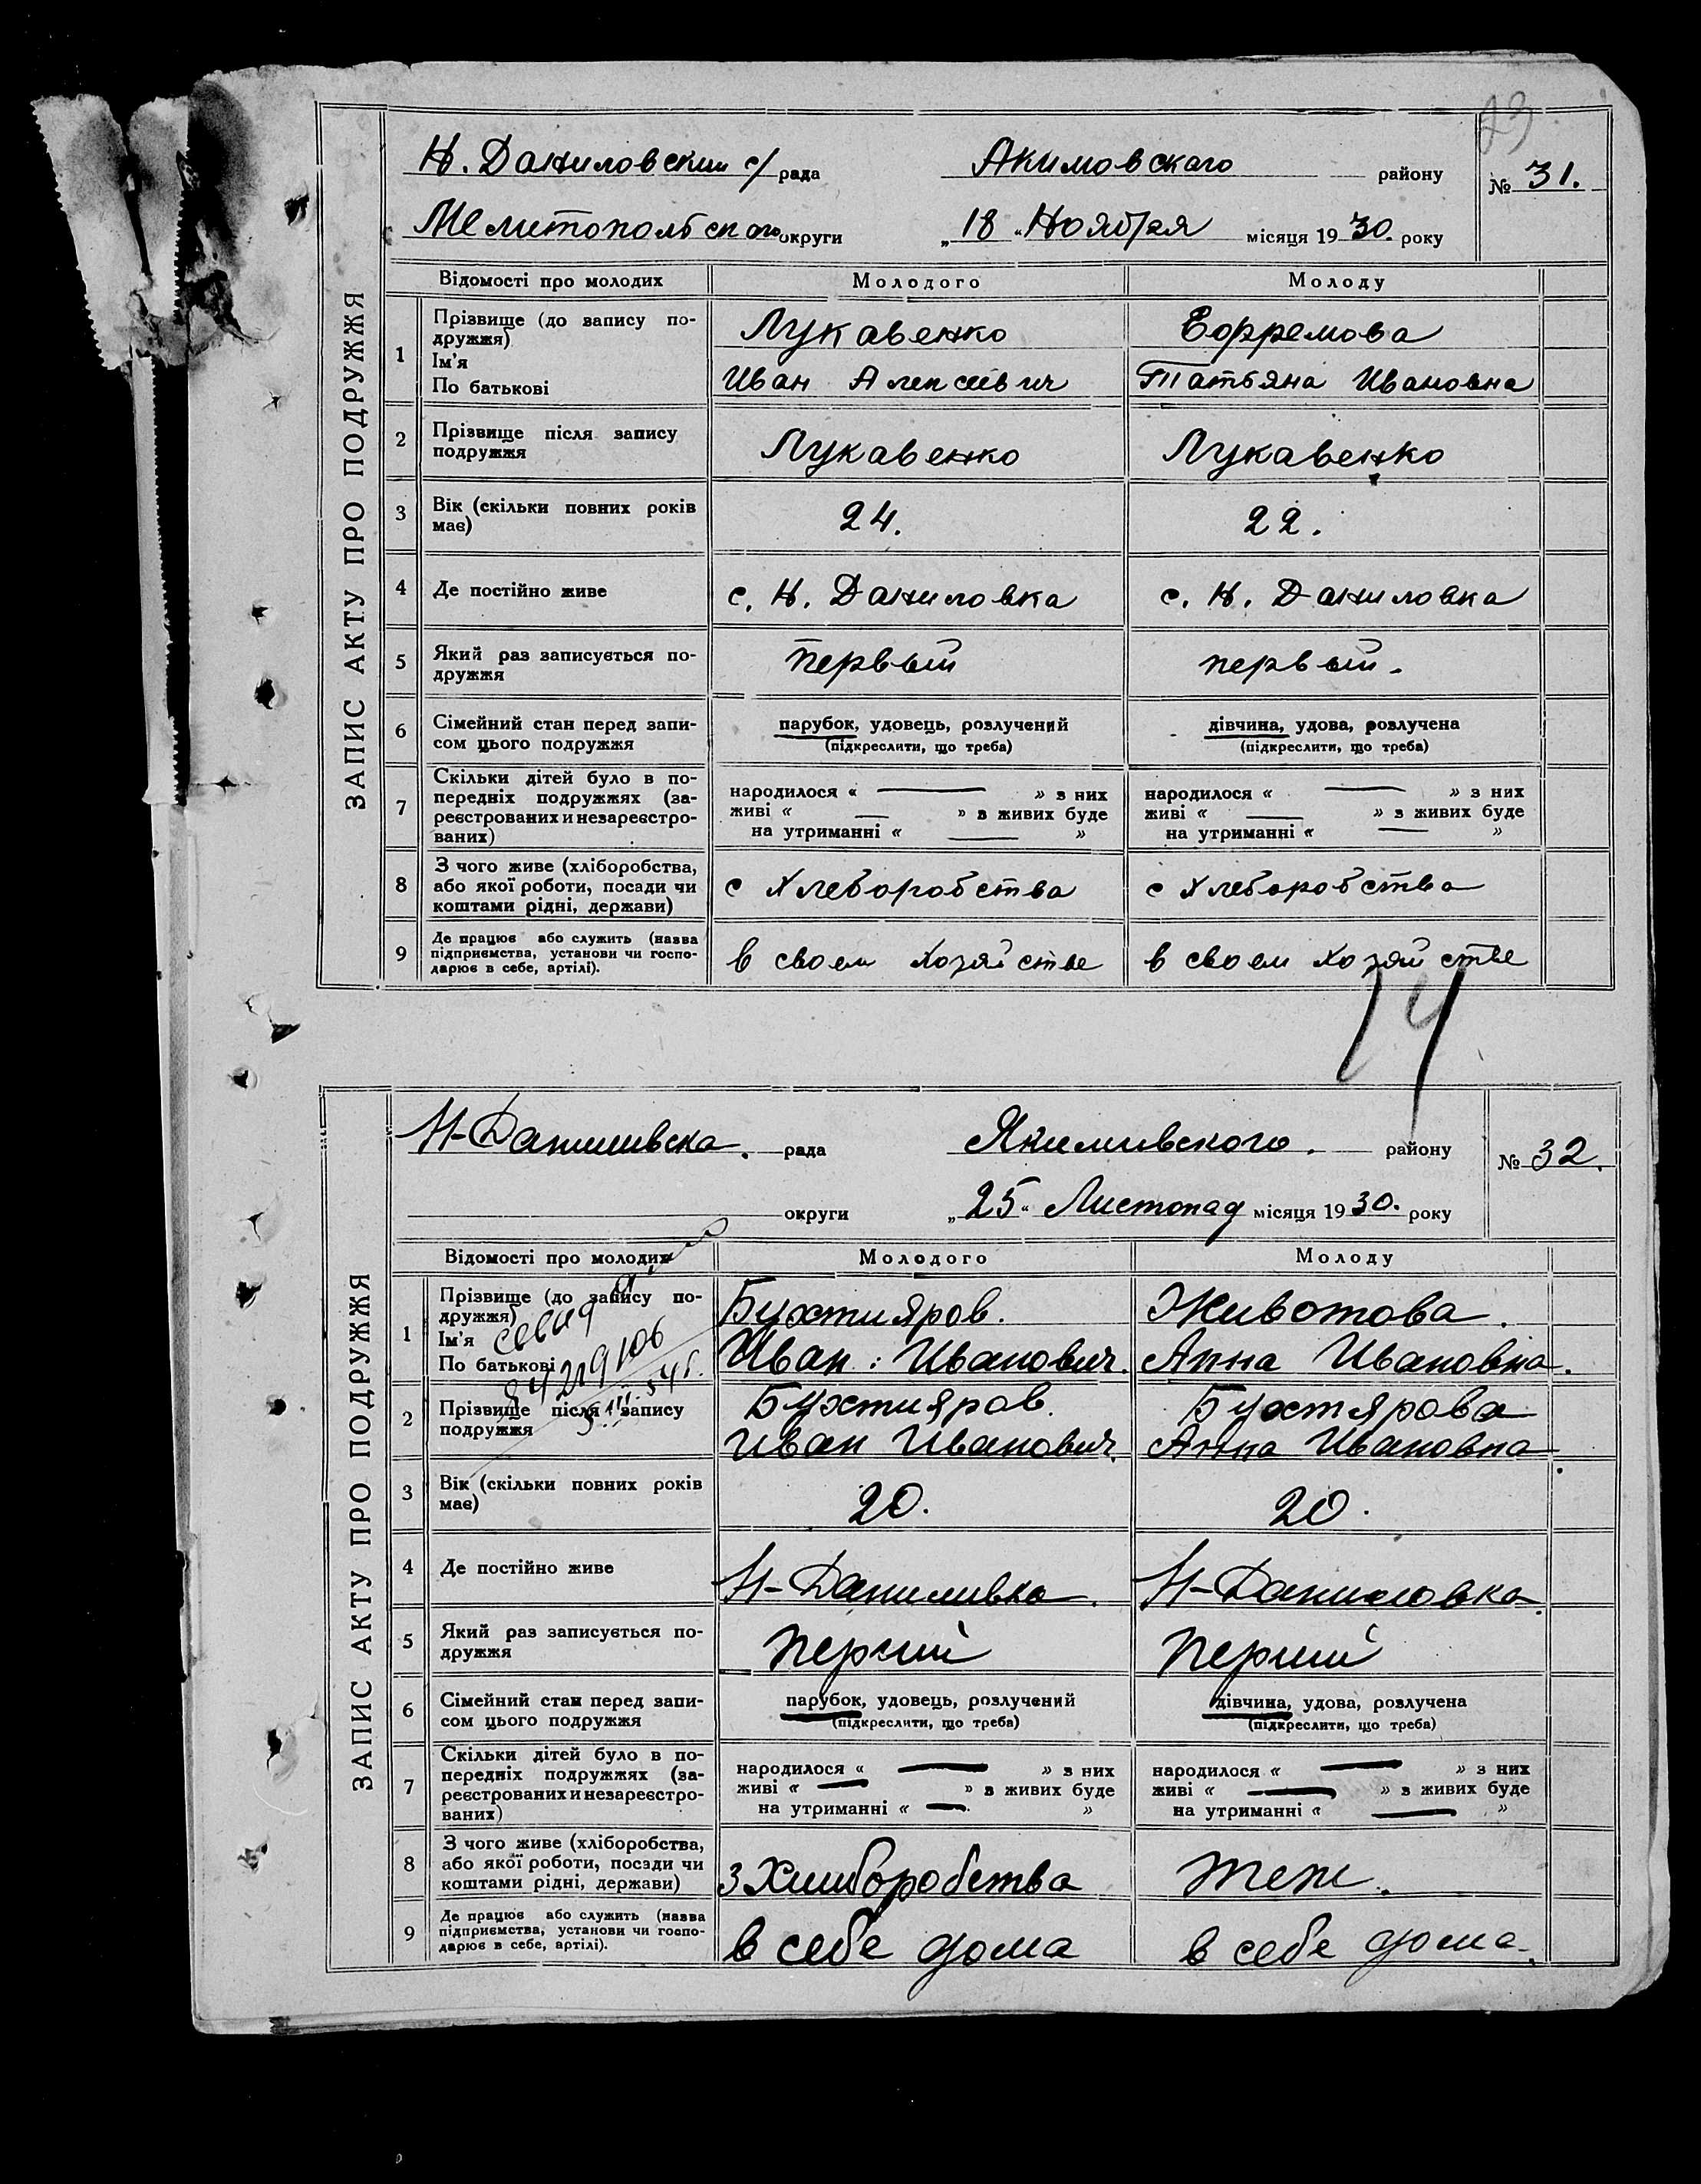 23
ЗАПИС АКТУ ПРО ПОДРУЖЖЯ
Н. Даниловский с/ рада Акимовского району № 31.
Мелитопольского округи „18“ Ноября місяця 1930. року
Відомості про молодих Молодого Молоду
1 Прізвище (до запису по- Лукавенко Ефремова
дружжя)
Ім'я Иван Алексеевич Татьяна Ивановна
По батькові
2 Прізвище після запису Лукавенко Лукавенко
подружжя
3 Вік (скільки повних років 24. 22.
має)
4 Де постійно живе с. Н. Даниловка с. Н. Даниловка
5 Який раз записується по- первый первый.
дружжя
6 Сімейний стан перед запи- парубок, удовець, розлучений дівчина, удова, розлучена
сом цього подружжя (підкреслити, що треба) (підкреслити, що треба)
7 Скільки дітей було в по-
передніх подружжях (за- народилося « — » з них народилося « — » з них
реєстрованих и незареєстро- живі « — » з живих буде живі « — » з живих буде
ваних) на утриманні « — » на утриманні « — »
8 З чого живе (хліборобства,
або якої роботи, посади чи с хлеборобства с хлеборобства
коштами рідні, держави)
9 Де працює або служить (назва
підприємства, установи чи госпо- в своем хозяйстве в своем хозяйстве
дарює в себе, артілі).
14
ЗАПИС АКТУ ПРО ПОДРУЖЖЯ
Н-Даниливска. рада Якимивского. району № 32.
округи „25“ Листопад місяця 1930. року
Відомості про молодих Молодого Молоду
1 Прізвище (до запису по- Бухтияров. Животова.
дружжя)
Ім'я Иван: Иванович. Анна Ивановна.
По батькові
2 Прізвище після запису Бухтияров. Бухтярова
подружжя Иван Иванович. Анна Ивановна
3 Вік (скільки повних років 20. 20.
має)
4 Де постійно живе Н-Даниливка. Н-Даниловка.
5 Який раз записується по- Перший Перший
дружжя
6 Сімейний стан перед запи- парубок, удовець, розлучений дівчина, удова, розлучена
сом цього подружжя (підкреслити, що треба) (підкреслити, що треба)
7 Скільки дітей було в по-
передніх подружжях (за- народилося « — » з них народилося « — » з них
реєстрованих и незареєстро- живі « — » з живих буде живі « — » з живих буде
ваних) на утриманні « — » на утриманні « — »
8 З чого живе (хліборобства,
або якої роботи, посади чи З Хлиборобства теж.
коштами рідні, держави)
9 Де працює або служить (назва
підприємства, установи чи госпо- в себе дома в себе дома.
дарює в себе, артілі).